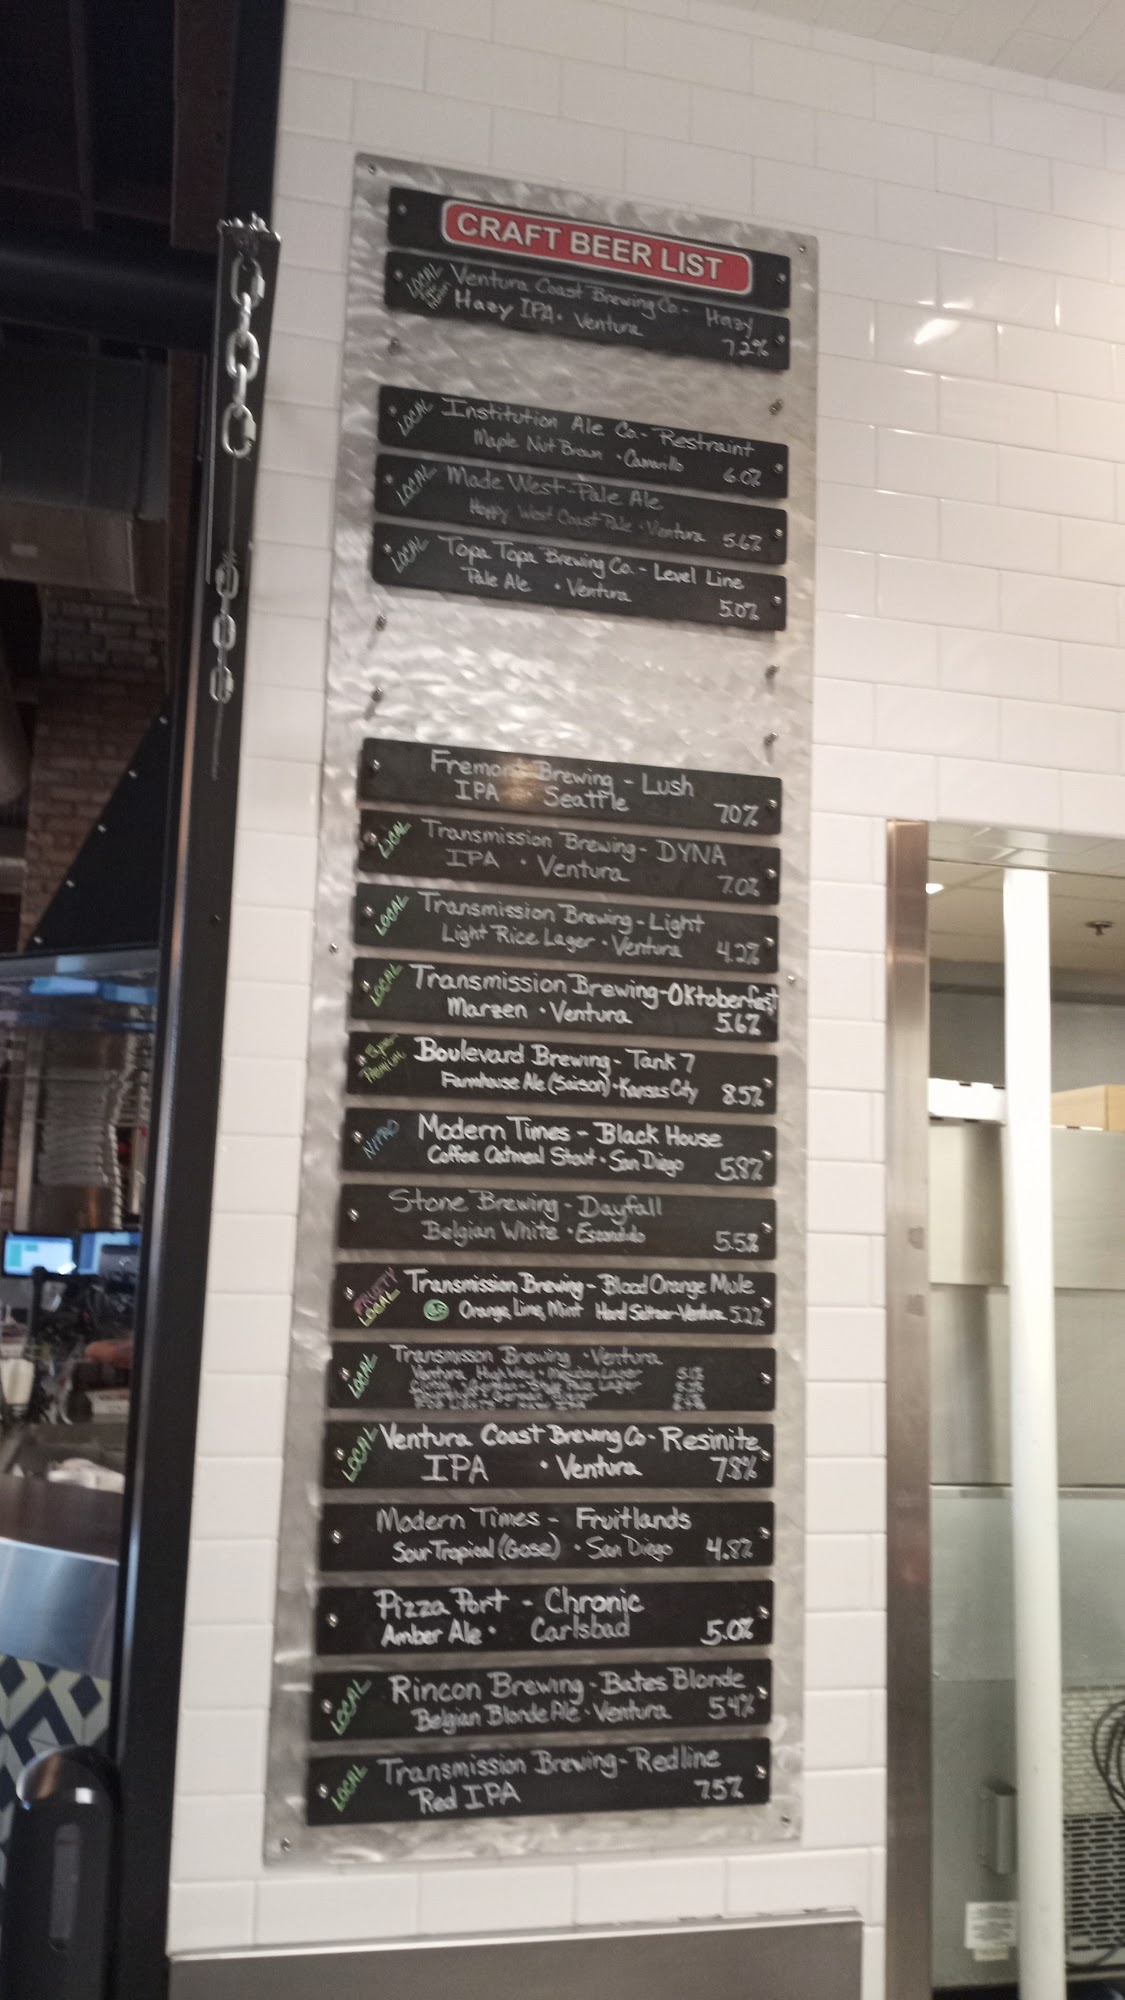 CRAFT BEER LIST
LOCAL Ventura Coast Brewing Co- Hazy
Hazy IPA • Ventura 7.2%
LOCAL Institution Ale Co.- Restraint
Maple Nut Brown • Camarillo 6.0%
LOCAL Made West-Pale Ale
Hoppy West Coast Pale • Ventura 5.6%
LOCAL Topa Topa Brewing Co.- Level Line
Pale Ale • Ventura 5.0%
Fremont Brewing - Lush
IPA Seattle 70%
LOCAL Transmission Brewing- DYNA
IPA • Ventura 7.0%
LOCAL Transmission Brewing-Light
Light Rice Lager • Ventura 4.2%
LOCAL Transmission Brewing-Oktoberfest
Marzen • Ventura 5.6%
Super Premium Boulevard Brewing- Tank 7
Farmhouse Ale (Saison) • Kansas City 8.5%
NITRO Modern Times - Black House
Coffee Oatmeal Stout • San Diego 5.8%
Stone Brewing - Dayfall
Belgian White • Escondido 5.5%
FRUITY LOCAL Transmission Brewing- Blood Orange Mule
Orange, Lime, Mint Hard Seltzer-Ventura 5.2%
LOCAL Transmisson Brewing • Ventura
Ventura Highway • Mexican Lager 5.1%
LOCAL Ventura Coast Brewing Co- Resinite
IPA • Ventura 7.8%
Modern Times - Fruitlands
Sour Tropical (Gose) • San Diego 4.8%
Pizza Port - Chronic
Amber Ale • Carlsbad 5.0%
LOCAL Rincon Brewing - Bates Blonde
Belgian Blonde Ale • Ventura 5.4%
LOCAL Transmission Brewing-Redline
Red IPA 7.5%